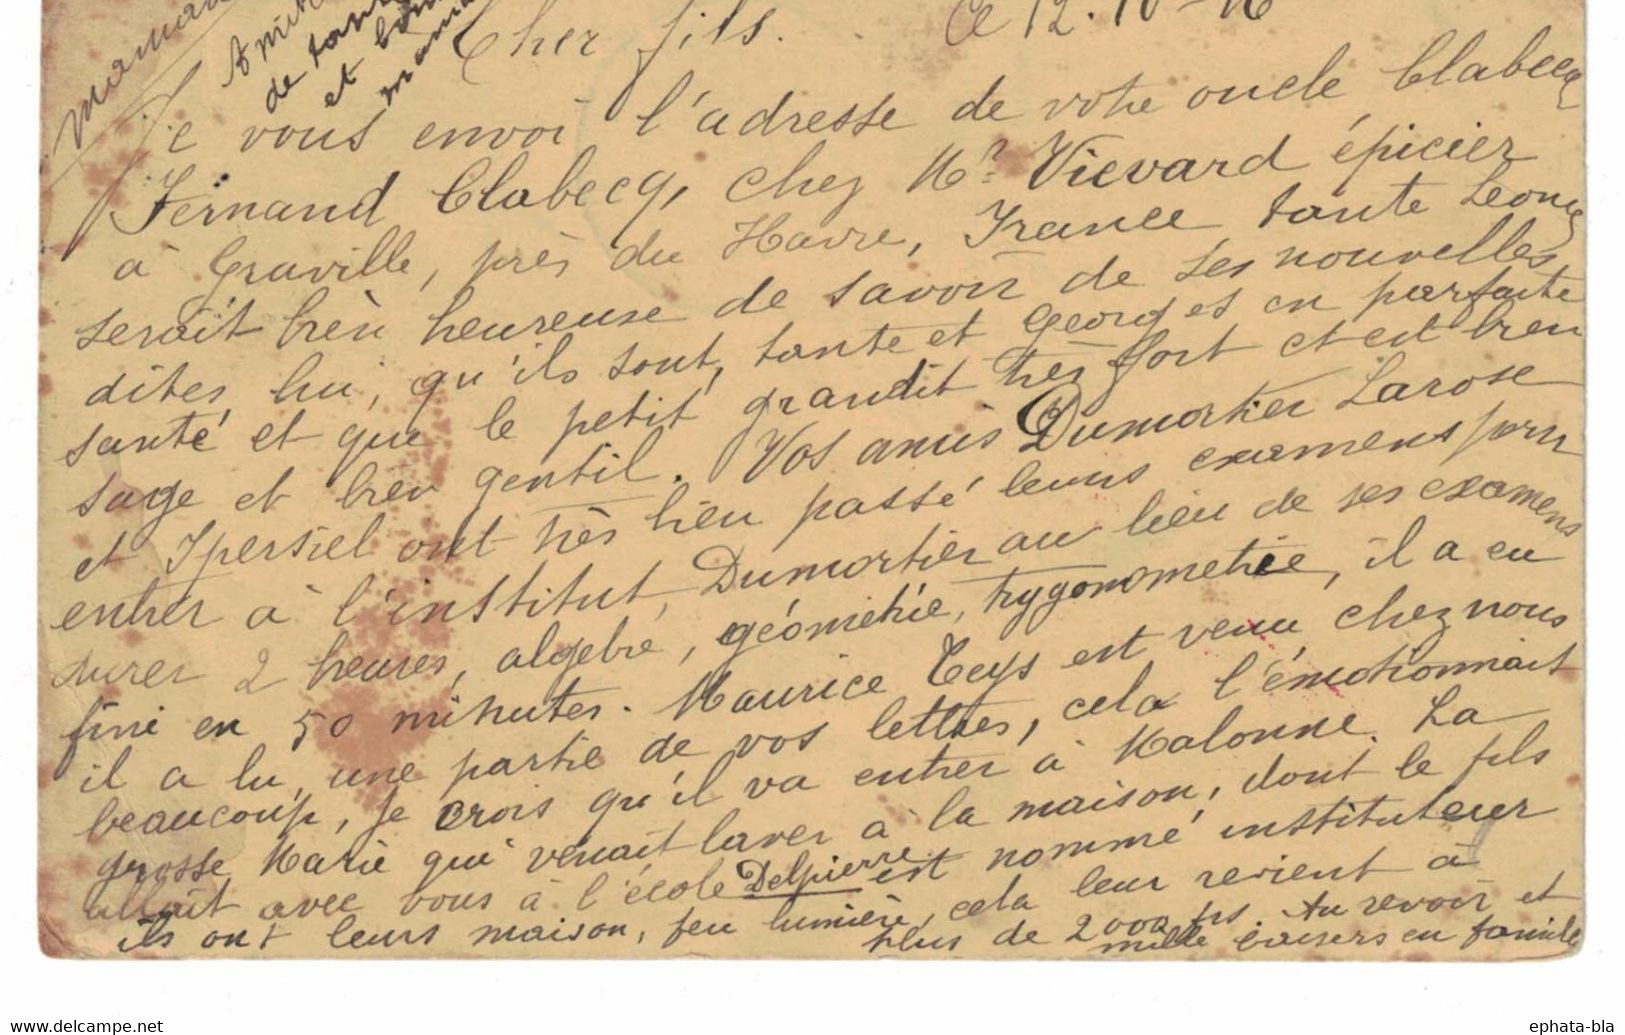 maman
Amitiés
de tante
et bonne
maman
Cher fils. Ce 12.10-16
Je vous envoi l'adresse de votre oncle Clabecq
Fernand Clabecq, chez Mr Vievard épicier
à Graville, près du Havre, France tante Leonie
serait bièn heureuse de savoir de ses nouvelles
dites lui, qu'ils sont, tante et Georges en parfaite
santé et que le petit grandit très fort et est bien
sage et bièn gentil. Vos amis Dumortier Larose
et Ipersiel ont très bien passé leurs examens pour
entrer à l'institut, Dumortier au lieu de ses examens
durer 2 heures, algebre, géométrie, trygonometrie, il a eu
fini en 50 minutes. Maurice Ceys est venu chez nous
il a lu, une partie de vos lettres, cela l'émotionnait
beaucoup, je crois qu'il va entrer à Malonne. La
grosse Marie qui venait laver à la maison, dont le fils
allait avec vous à l'école Delpierre est nommé instituteur
ils ont leurs maison, feu lumière, cela leur revient à
plus de 2000 frs. Au revoir et
mille baisers en famille
www.delcampe.net
ephata-bla